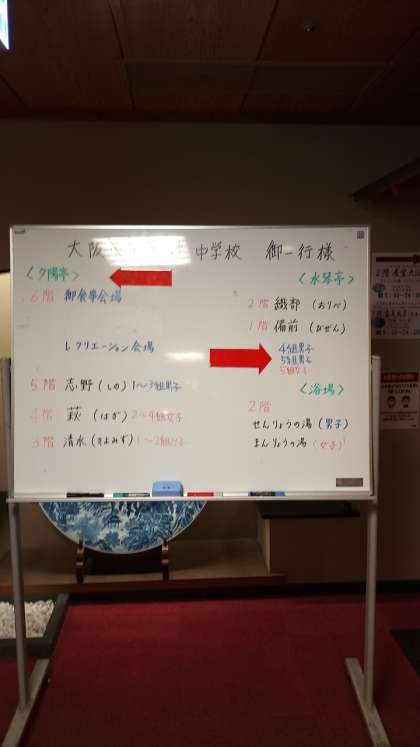 大阪 中学校 御一行様
〈夕陽亭〉
6階 御食事会場
レクリエーション会場
5階 志野(しの)1〜3組男子
4階 萩(はぎ)2〜4組女子
3階 清水(きよみず)1〜2組女子
〈水琴亭〉
2階 織部(おりべ)
1階 備前(びぜん)
4組男子
5組男子
5組女子
〈浴場〉
2階
せんりょうの湯(男子)
まんりょうの湯(女子)